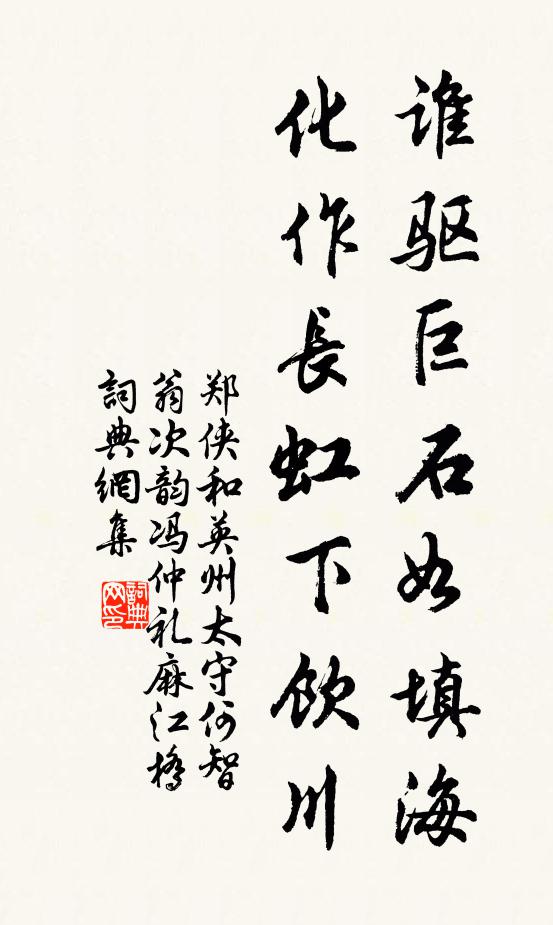 谁驱巨石如填海
化作長虹下饮川
郑侠和英州太守何智
翁次韵冯仲礼麻江橋
詞典網集
詞典
网印